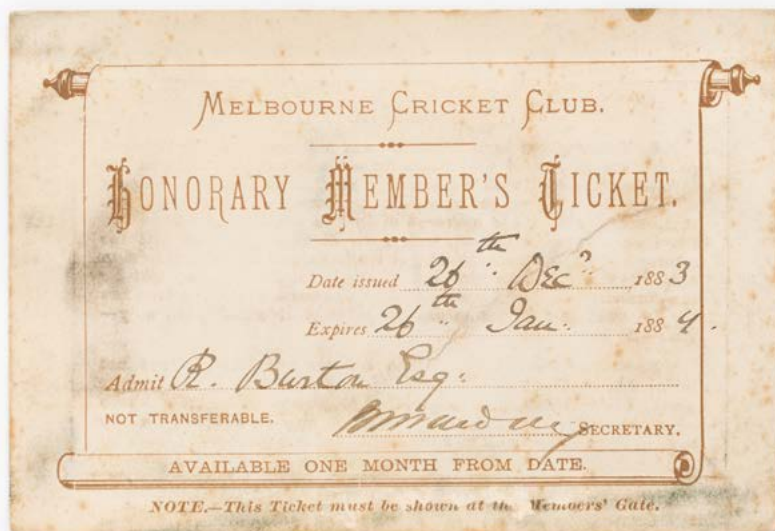 MELBOURNE CRICKET CLUB.
HONORARY MEMBER'S TICKET.
Date issued 26th Decr 1883
Expires 26th Jan: 1884.
Admit R. Burton Esq:
NOT TRANSFERABLE. SECRETARY.
AVAILABLE ONE MONTH FROM DATE.
NOTE.—This Ticket must be shown at the Members' Gate.